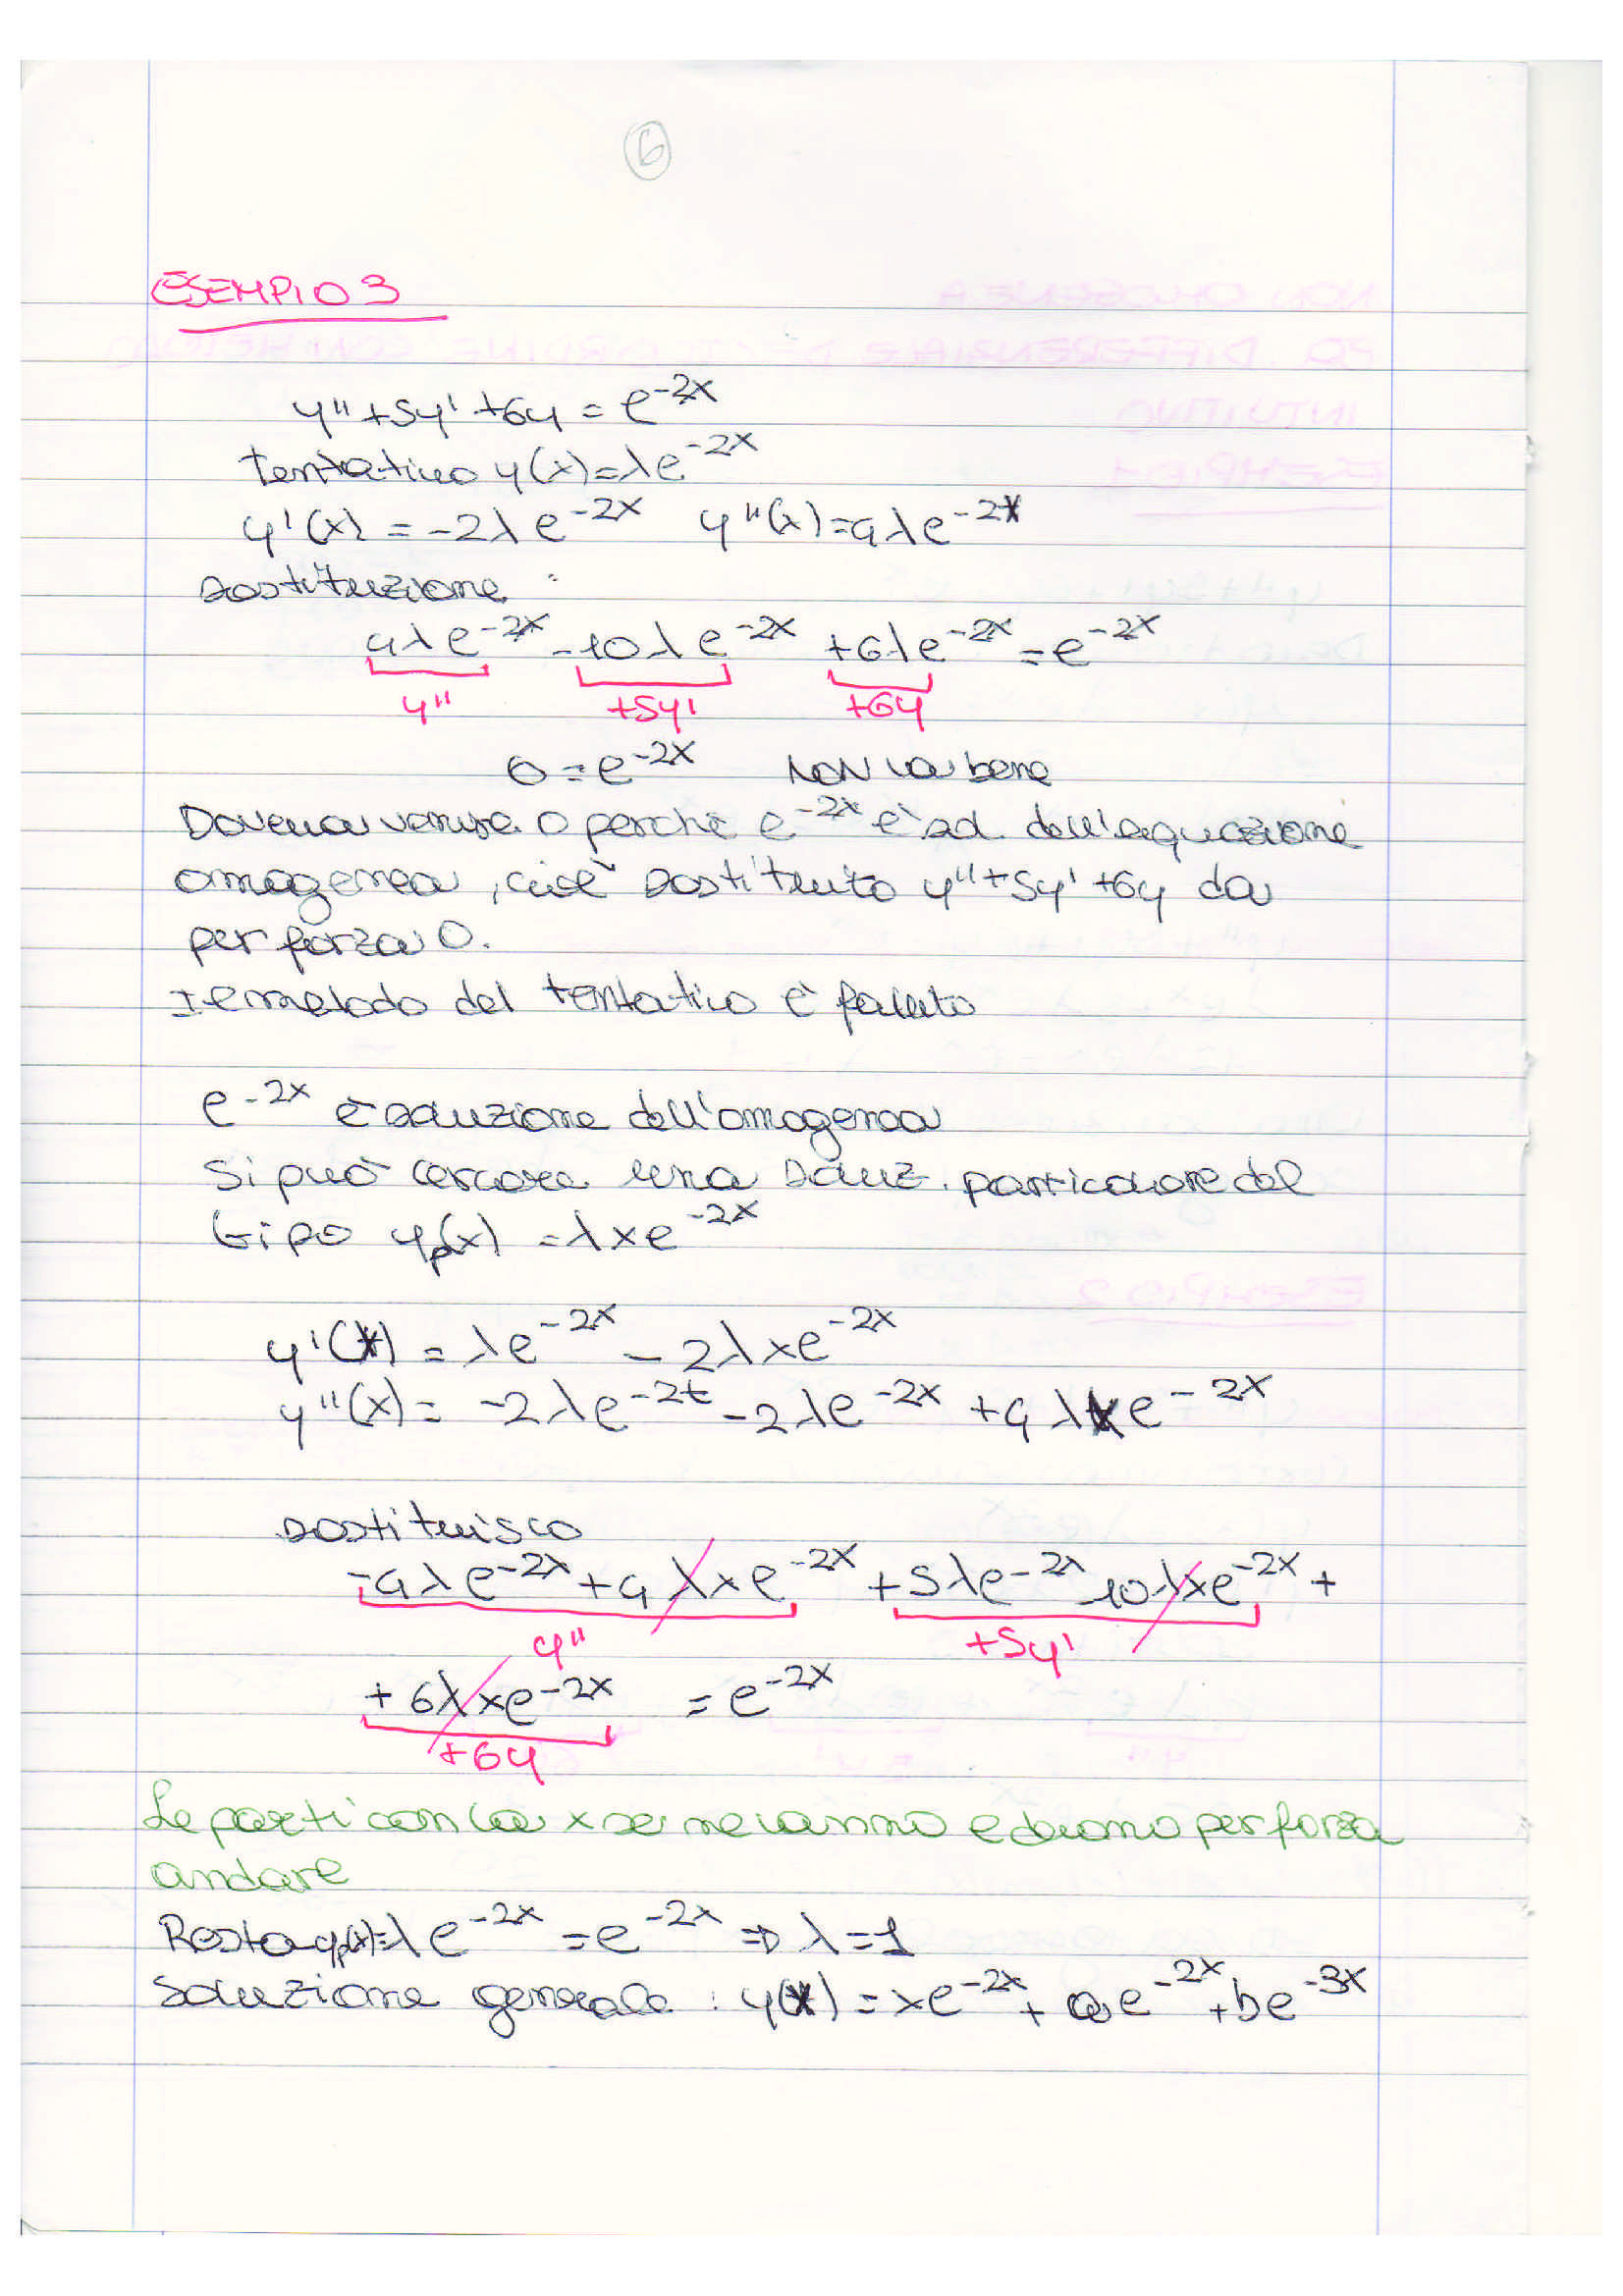 6
ESEMPIO 3
y'' + 5y' + 6y = e^-2x
tentativo y(x) = λe^-2x
y'(x) = -2λe^-2x y''(x) = 4λe^-2x
sostituzione :
4λe^-2x - 10λe^-2x + 6λe^-2x = e^-2x
y'' +5y' +6y
0 = e^-2x NON va bene
Doveva venire 0 perchè e^-2x è sol. dell'equazione
omogenea, cioè sostituito y'' + 5y' + 6y da
per forza 0.
Il metodo del tentativo è fallito
e^-2x è soluzione dell'omogenea
Si può cercare una soluz. particolare del
tipo yp(x) = λxe^-2x
y'(x) = λe^-2x - 2λxe^-2x
y''(x) = -2λe^-2t - 2λe^-2x + 4λxe^-2x
sostituisco
-4λe^-2x + 4λxe^-2x + 5λe^-2x 10λxe^-2x +
y'' +5y'
+ 6λxe^-2x = e^-2x
+6y
Le parti con la x se ne vanno e devono per forza
andare
Resta yp(x)=λe^-2x = e^-2x ⇒ λ=1
Soluzione generale : y(x) = xe^-2x + ae^-2x + be^-3x